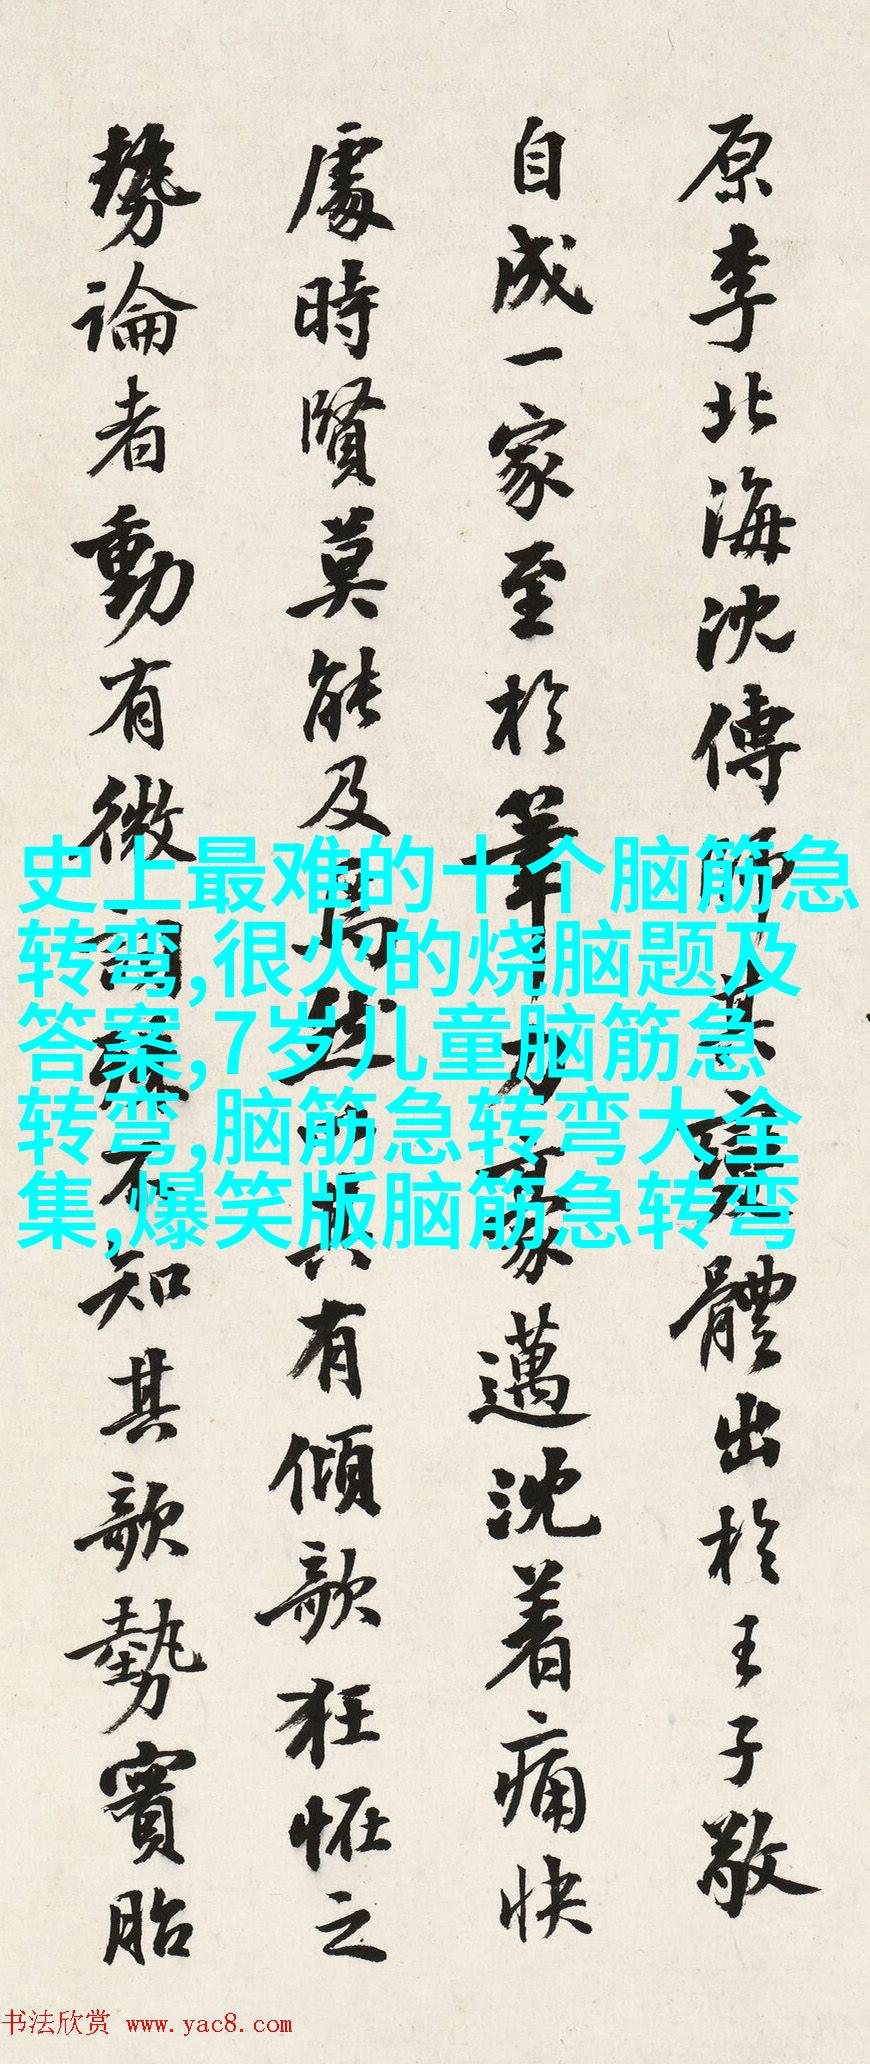 原李北海沈傳師其變體出於王子敬
自成一家至於筆力豪邁沈着痛快
處時賢莫能及焉然以其有傾欹狂怪之
勢論者動有微詞不知其欹勢實胎
史上最难的十个脑筋急
转弯,很火的烧脑题及
答案,7岁儿童脑筋急
转弯,脑筋急转弯大全
集,爆笑版脑筋急转弯
书法欣赏 www.yac8.com